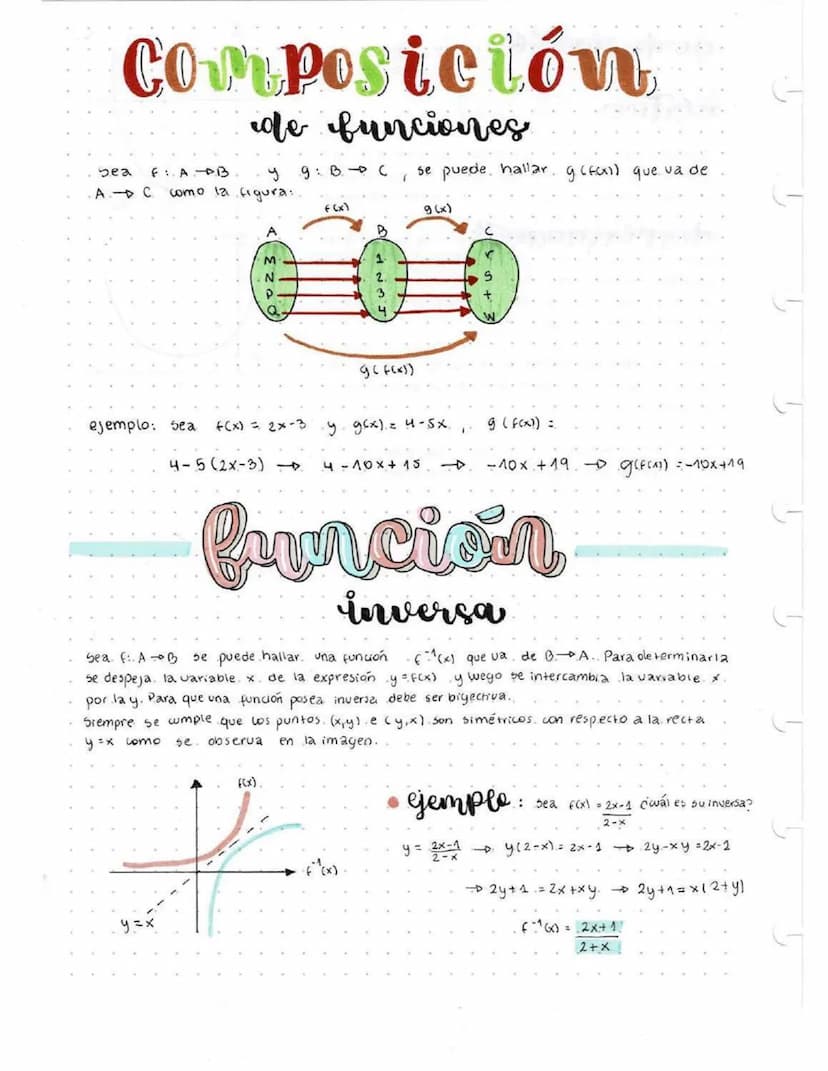 Composición
de funciones
Sea f: A → B y g: B → C, se puede hallar g(f(x)) que va de
A → C como la figura:
f(x) g(x)
A B C
M 1 r
N 2 s
P 3 t
Q 4 w
g(f(x))
ejemplo: sea f(x) = 2x-3 y g(x) = 4-5x, g(f(x)) =
4-5(2x-3) → 4-10x+15 → -10x+19 → g(f(x)) = -10x+19
función
inversa
Sea f: A → B se puede hallar una función f⁻¹(x) que va de B → A. Para determinarla
se despeja la variable x de la expresión y=f(x) y luego se intercambia la variable x
por la y. Para que una función posea inversa debe ser biyectiva.
Siempre se cumple que los puntos (x,y) e (y,x) son simétricos con respecto a la recta
y=x como se observa en la imagen.
f(x)
f⁻¹(x)
y=x
ejemplo: sea f(x) = 2x-1/2-x ¿cuál es su inversa?
y = 2x-1/2-x → y(2-x) = 2x-1 → 2y-xy = 2x-1
→ 2y+1 = 2x+xy → 2y+1 = x(2+y)
f⁻¹(x) = 2x+1/2+x